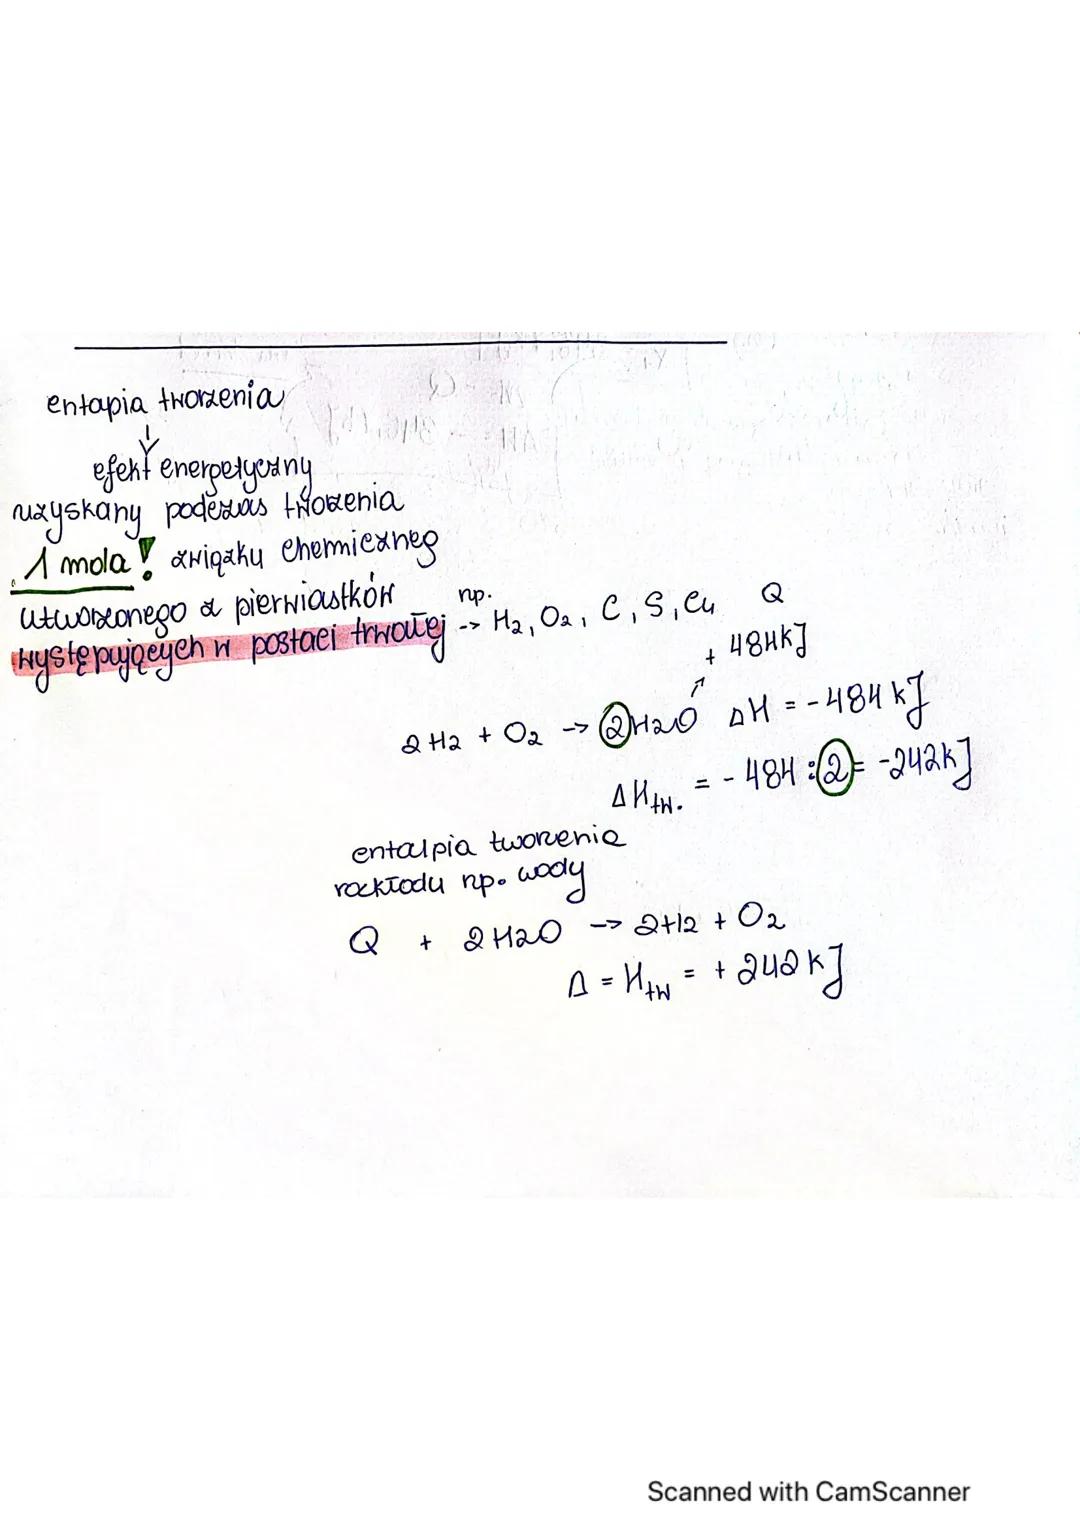 entapia tworzenia
↓
efekt energetyczny
uzyskany podczas tworzenia
1 mola! związku chemiczneg
utworzonego z pierwiastków
występujących w postaci trwałej np. -> H2, O2, C, S, Cu Q
+ 484kJ
2 H2 + O2 -> 2H2O ΔH = -484 kJ
ΔHtw. = - 484 : 2 = -242kJ
entalpia tworzenia
rozkładu np. wody
Q + 2 H2O -> 2H2 + O2
Δ = Htw = + 242 kJ
Scanned with CamScanner